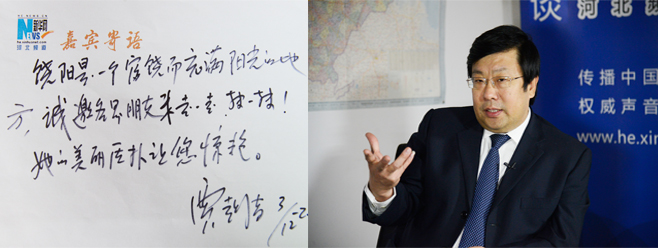 NEWS 新华网
河北频道
嘉宾寄语
饶阳县,一个富饶而充满阳光的地
方,诚邀各界朋友来走一走 转一转!
她的美丽质朴让您惊艳。
贾
谈 河北
传播中国
权威声音
www.he.xin